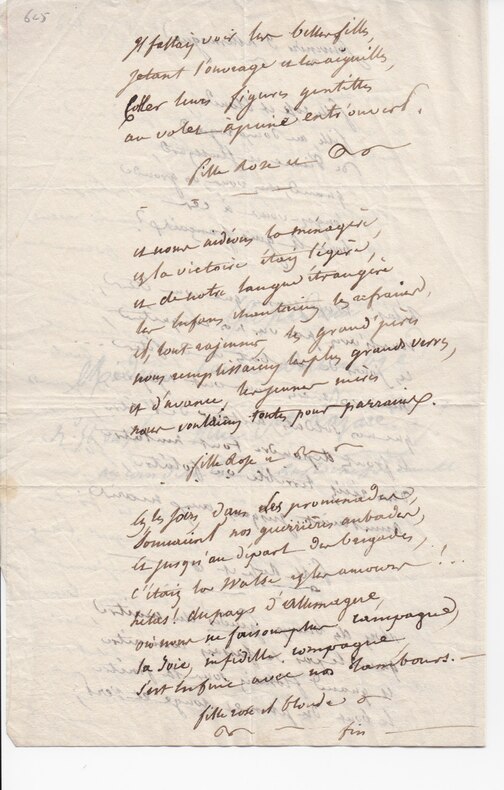 625
Il fallait voir les belles filles,
jetant l'ouvrage et les aiguilles,
Coller leurs figures gentilles
au volet à peine entr'ouvert.
fille Rose et
et nous aidions la ménagère,
et la victoire était légère,
et de notre langue étrangère
les enfans chantaient les refrains,
et, tout rajeunis les grand'pères
nous remplissaient les plus grands verres,
et d'avance, les jeunes mères
nous voulaient toutes pour parrains.
fille Rose et
et les soirs, dans les promenades,
Sonnaient nos guerrières aubades,
et jusqu'au départ des brigades,
c'était la Walse et les amours !...
hélas! du pays d'Allemagne,
où nous ne faisons plus campagne,
la Joie, infidèle compagne
S'est enfuie avec nos tambours. —
fille rose et blonde &
fin